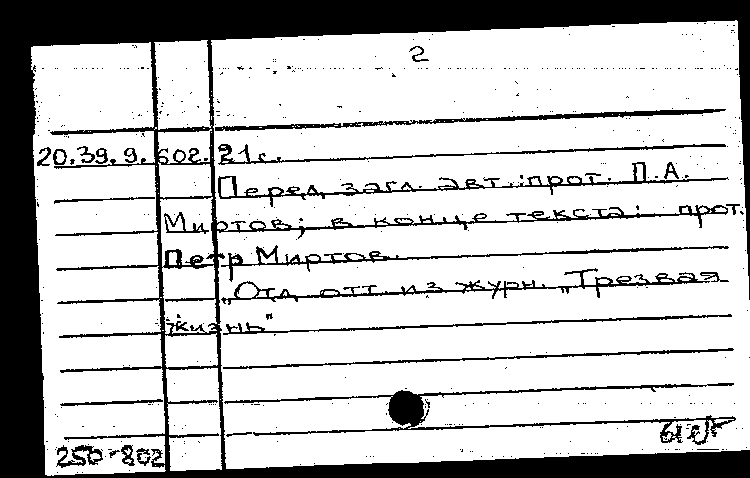 2
20.39.9.602. 21с.
Перед загл. авт.: прот. П.А.
Миртов; в конце текста: прот.
Петр Миртов.
„Отд. отт. из журн. „Трезвая
жизнь"
250-802